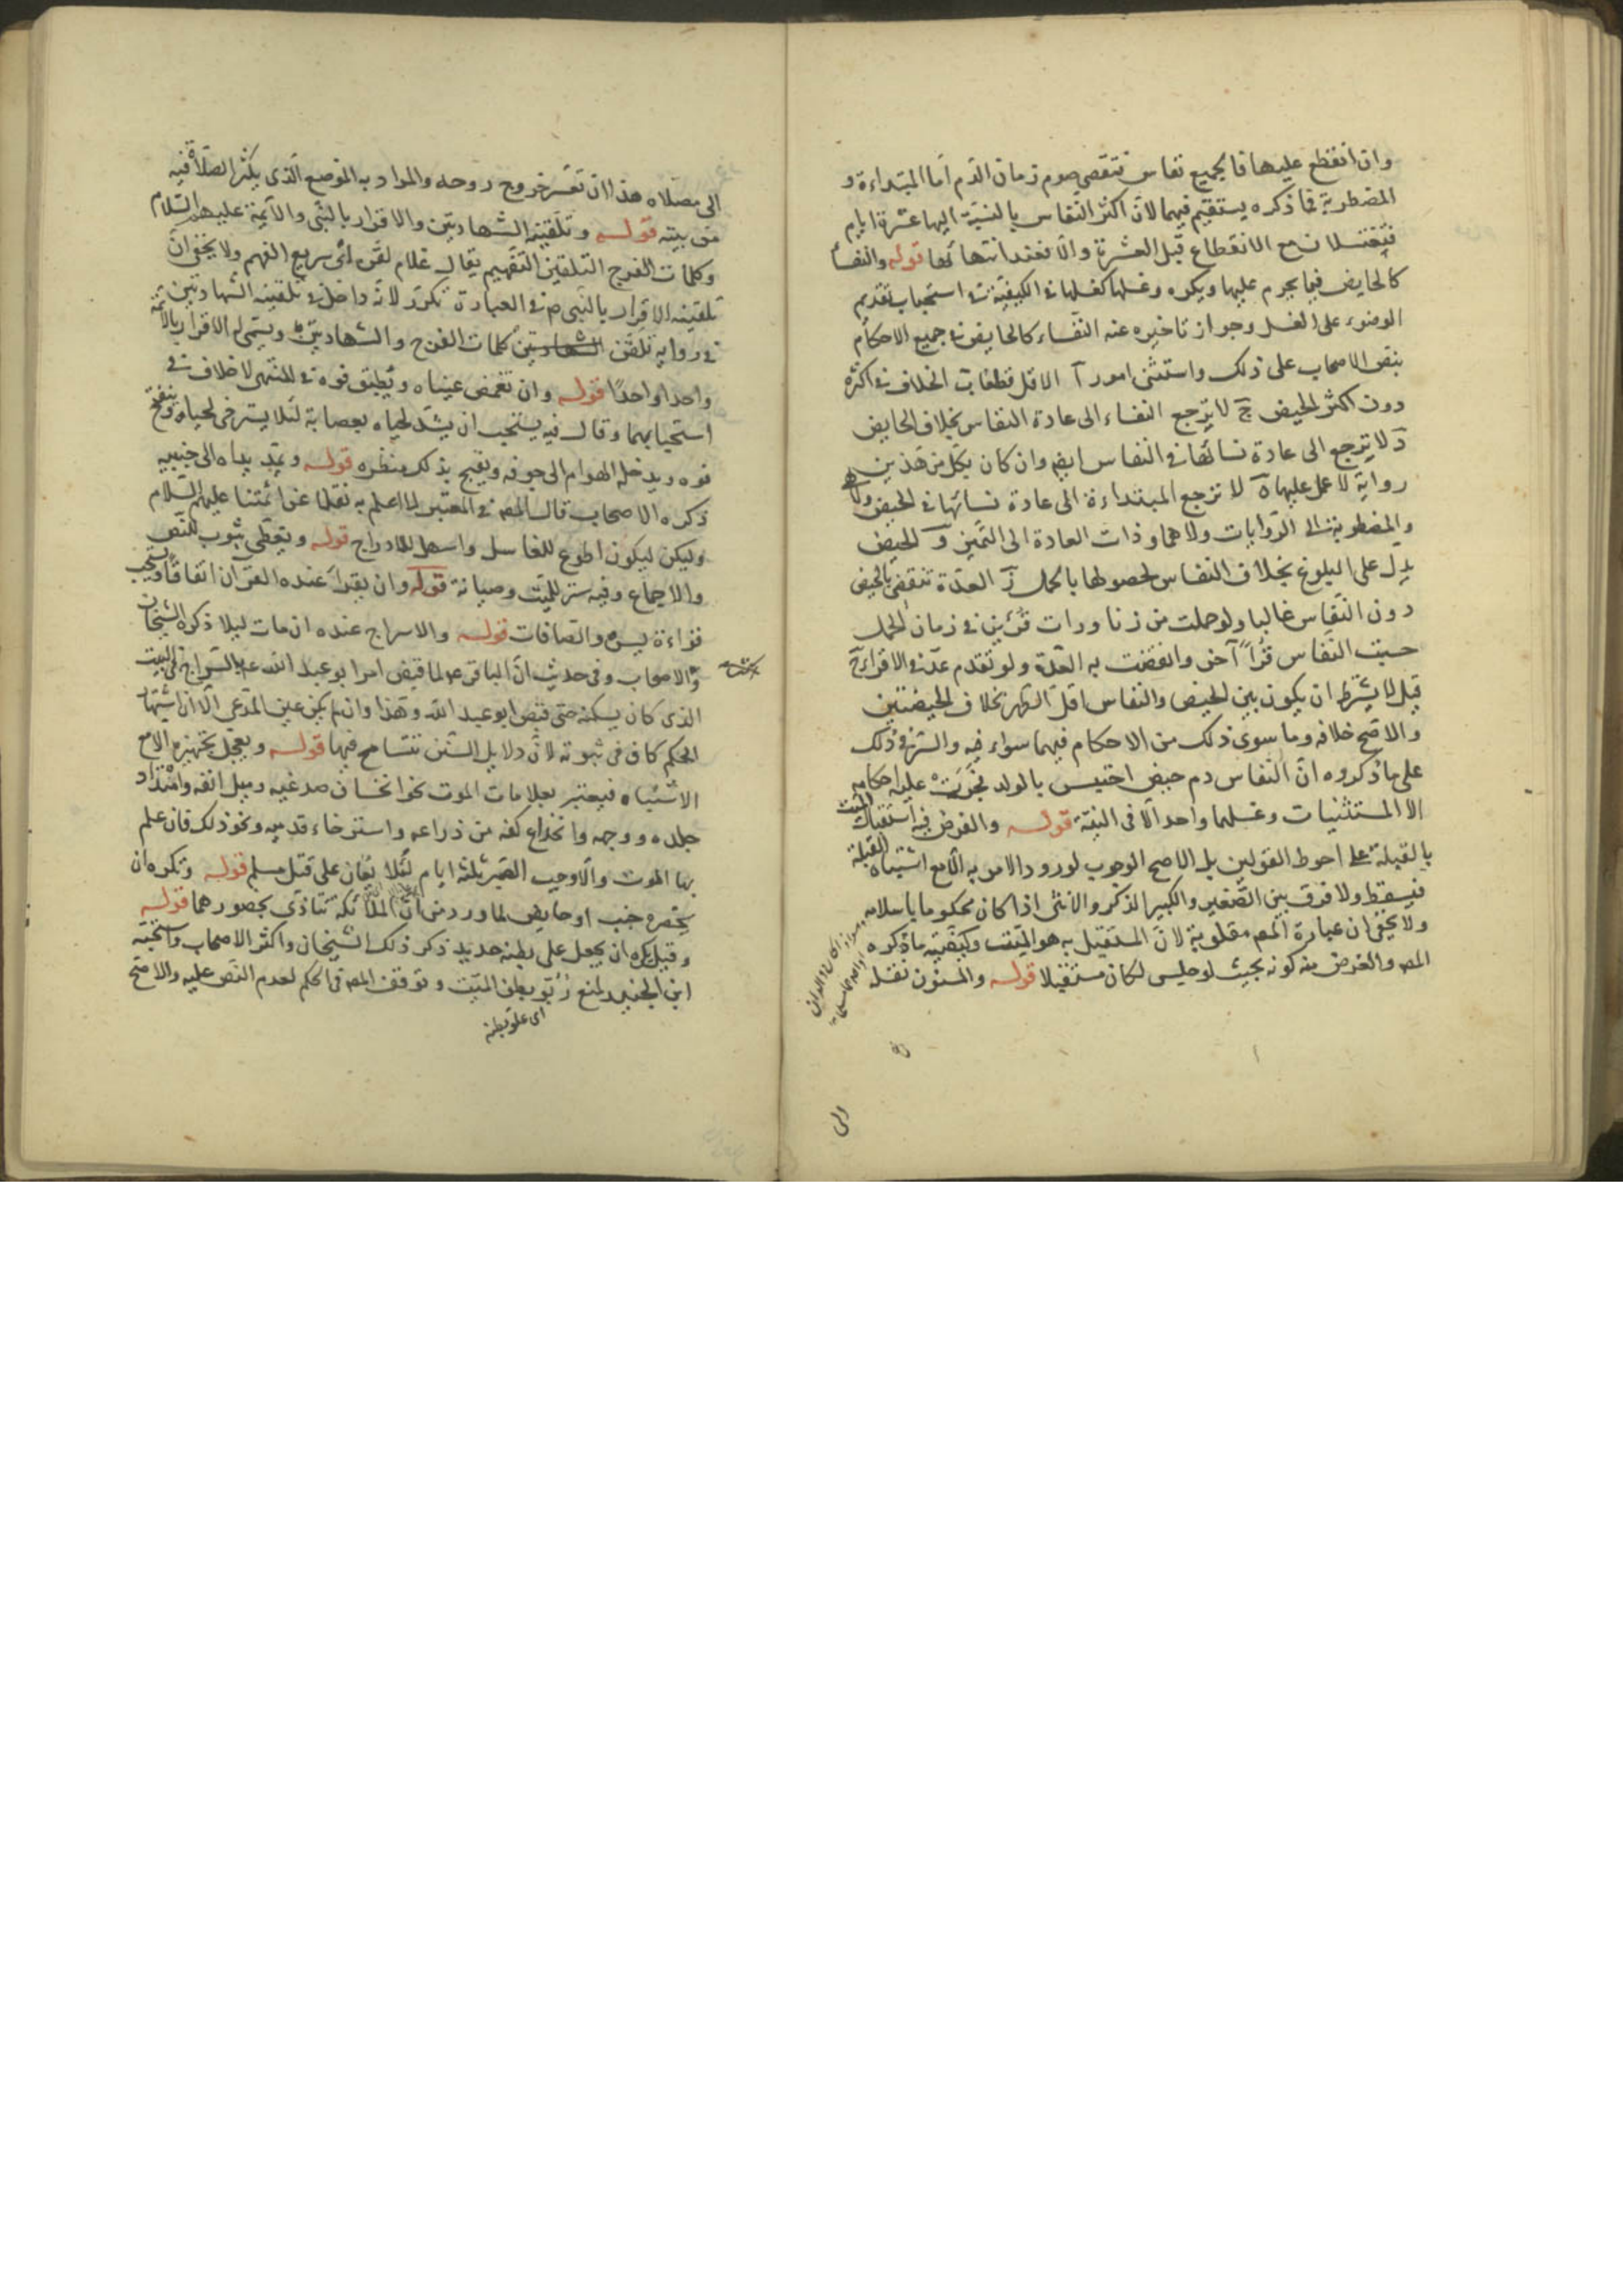 وان انقطع عليها فالجميع نفاس فتقضي صوم زمان الدم اما المبتداءة و
المضطربة فما ذكره يستقيم فيهما لان اكثر النفاس بالنسبة اليهما عشرة ايام
فيغتسلان مع الانقطاع قبل العشرة والا فعند انتهائها قوله والنفساء
كالحايض فيما يحرم عليها ويكره وغسلها كغسلها في الكيفية في استحباب تقديم
الوضوء على الغسل وجواز تاخيره عنه النفساء كالحايض في جميع الاحكام
بنص الاصحاب على ذلك واستثنى امور آ الاقل قطعا ب الخلاف في اكثره
دون اكثر الحيض ج لا يرجع النفساء الى عادة النفاس بخلاف الحايض
د لا يرجع الى عادة نسائها في النفاس ايضا وان كان بكل من هذين
رواية لا عمل عليها ه لا ترجع المبتداءة الى عادة نسائها في الحيض ولا
والمضطربة الى الروايات ولا هما وذات العادة الى التميز و الحيض
يدل على البلوغ بخلاف النفاس لحصولها بالحمل ز العدة تنقضي بالحيض
دون النفاس غالبا ولو حملت من زنا ورات قرئين في زمان الحمل
حسبت النفاس قرءا آخر وانقضت به العدة ولو تقدم عدّ في الاقراء ح
قيل لا يشترط ان يكون بين الحيض والنفاس اقل الطهر بخلاف الحيضتين
والاصح خلافه وما سوى ذلك من الاحكام فيهما سواء فيه والسرّ في ذلك
على ما ذكروه ان النفاس دم حيض احتبس بالولد فجرت عليه احكامه
الا المستثنيات وغسلهما واحد الا في النية قوله والفرض فيه استقبال الميت
بالقبلة على احوط القولين بل الاصح الوجوب لورود الامر به الا مع اشتباه القبلة
فيسقط ولا فرق بين الصغير والكبير الذكر والانثى اذا كان محكوما باسلامه
ولا يخفى ان عبارة المصـ مقلوبة لان المستقبل به هو الميت وكيفيته ما ذكره
المصـ والغرض منه كونه بحيث لو جلس لكان مستقبلا قوله والمسنون نقله
الى
الى مصلاه هذا ان تعسر خروج روحه والمراد به الموضع الذي يكثر الصلاة فيه
من بيته قوله وتلقينه الشهادتين والاقرار بالنبي والائمة عليهم السلام
وكلمات الفرج التلقين التفهيم يقال غلام لقن اي سريع الفهم ولا يخفى ان
تلقينه الاقرار بالنبي ص في العبارة تكرر لانه داخل في تلقينه الشهادتين
في رواية تلقن الشهادتين كلمات الفرج والشهادتين ويسمى له الاقرار بالائمة
واحدا واحدا قوله وان تغمض عيناه ويطبق فوه في المنتهى لا خلاف في
استحبابهما وقال فيه يستحب ان يشد لحياه بعصابة لئلا يسترخى لحياه وينفتح
فوه ويدخل الهوام الى جوفه ويقبح بذلك منظره قوله وتمد يداه الى جنبيه
ذكره الاصحاب قال المصـ في المعتبر لا اعلم به نقلا عن ائمتنا عليهم السلام
وليكن ليكون اطوع للغاسل واسهل للادراج قوله ويغطى بثوب للنص
والاجماع وفيه ستر للميت وصيانة قوله وان يقرأ عنده القرآن اتفاقا ويستحب
قراءة يس والصافات قوله والاسراج عنده ان مات ليلا ذكره الشيخان
والاصحاب وفي حديث ان الباقر ع لما قبض امر ابو عبد الله ع بالسراج في البيت
الذي كان يسكنه حتى قبض ابو عبد الله وهذا وان لم يكن عين المدعى الا ان اشتهار
الحكم كاف في ثبوته لان دلايل السنن يتسامح فيها قوله ويعجل تجهيزه الا مع
الاشتباه فيعتبر بعلامات الموت نحو انخساف صدغيه وميل انفه وامتداد
جلده ووجهه وانخلاع كفه من ذراعه واسترخاء قدميه ونحو ذلك فان علم
بها الموت والا وجب الصبر ثلثة ايام لئلا يعان على قتل مسلم قوله وتكره ان
يحضره جنب او حايض لما ورد من ان الملائكة تتاذى بحضورهما قوله
وقيل يكره ان يجعل على بطنه حديد ذكر ذلك الشيخان واكثر الاصحاب واستحبه
ابن الجنيد ليمنع ربو بطن الميت وتوقف المصـ في الحكم لعدم النص عليه والاصح
اي علو بطنه